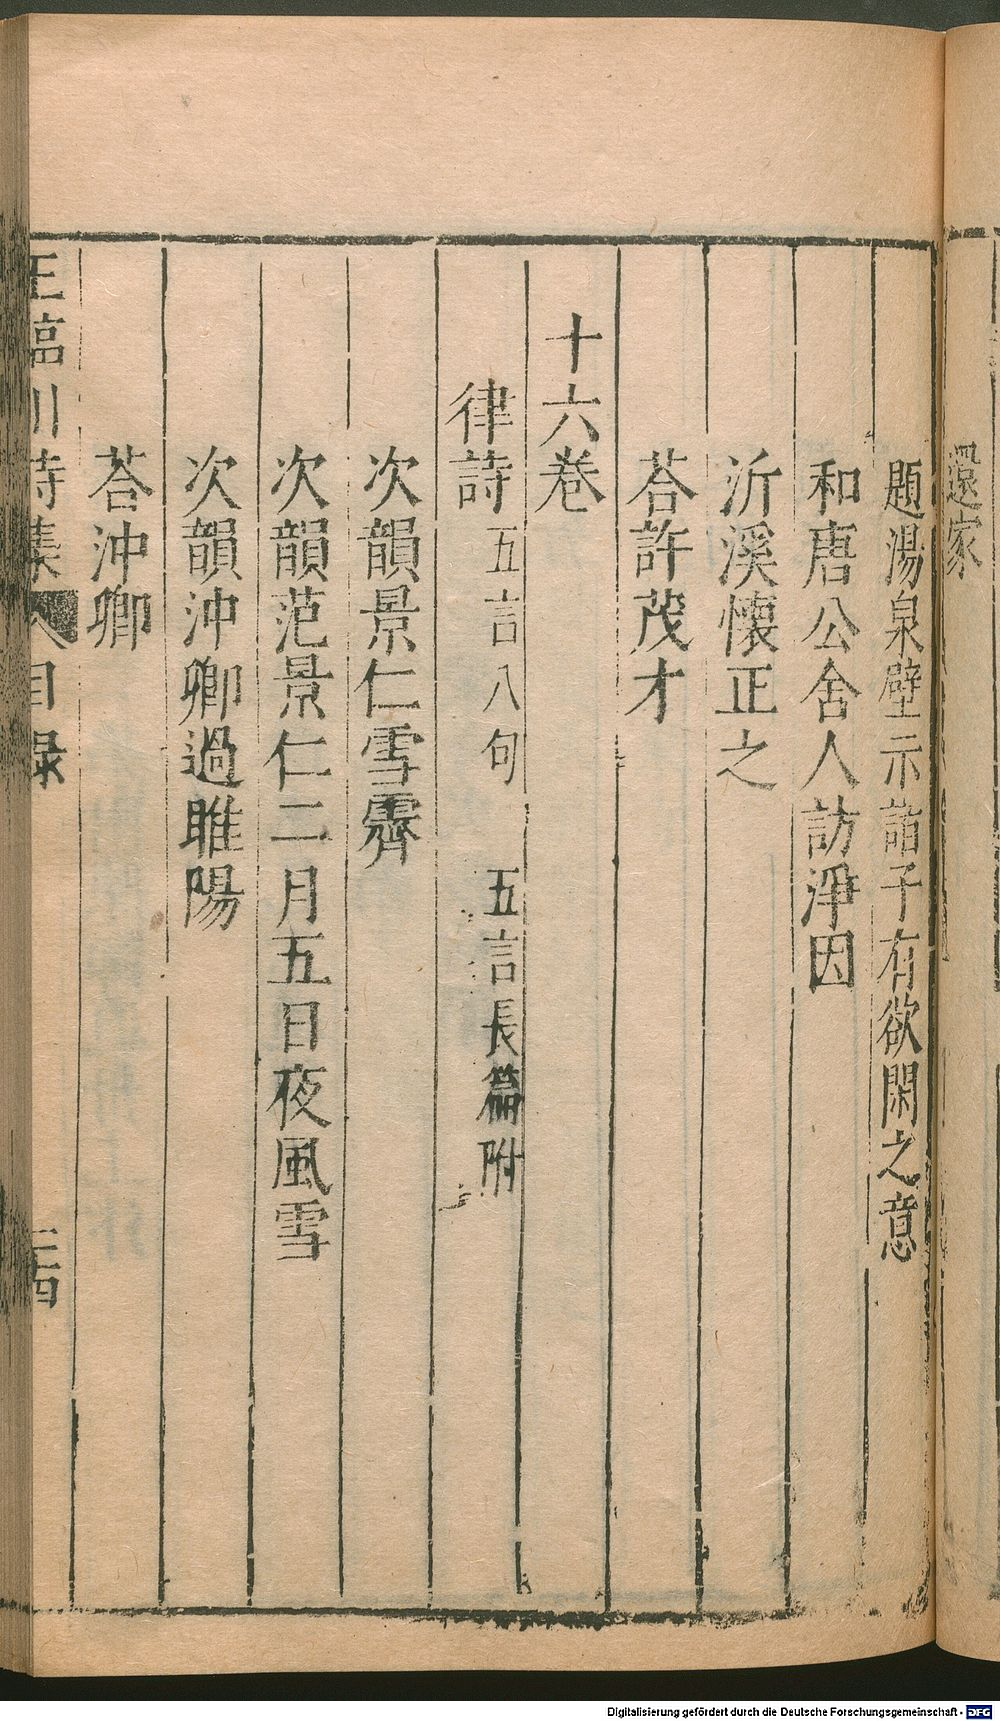 還家
題湯泉壁示諸子有欲閑之意
和唐公舍人訪淨因
沂溪懷正之
荅許茂才
十六巻
律詩 五言八句 五言長篇附
次韻景仁雪霽
次韻范景仁二月五日夜風雪
次韻沖卿過睢陽
荅沖卿
王臨川詩集 目録 三四
Digitalisierung gefördert durch die Deutsche Forschungsgemeinschaft - DFG